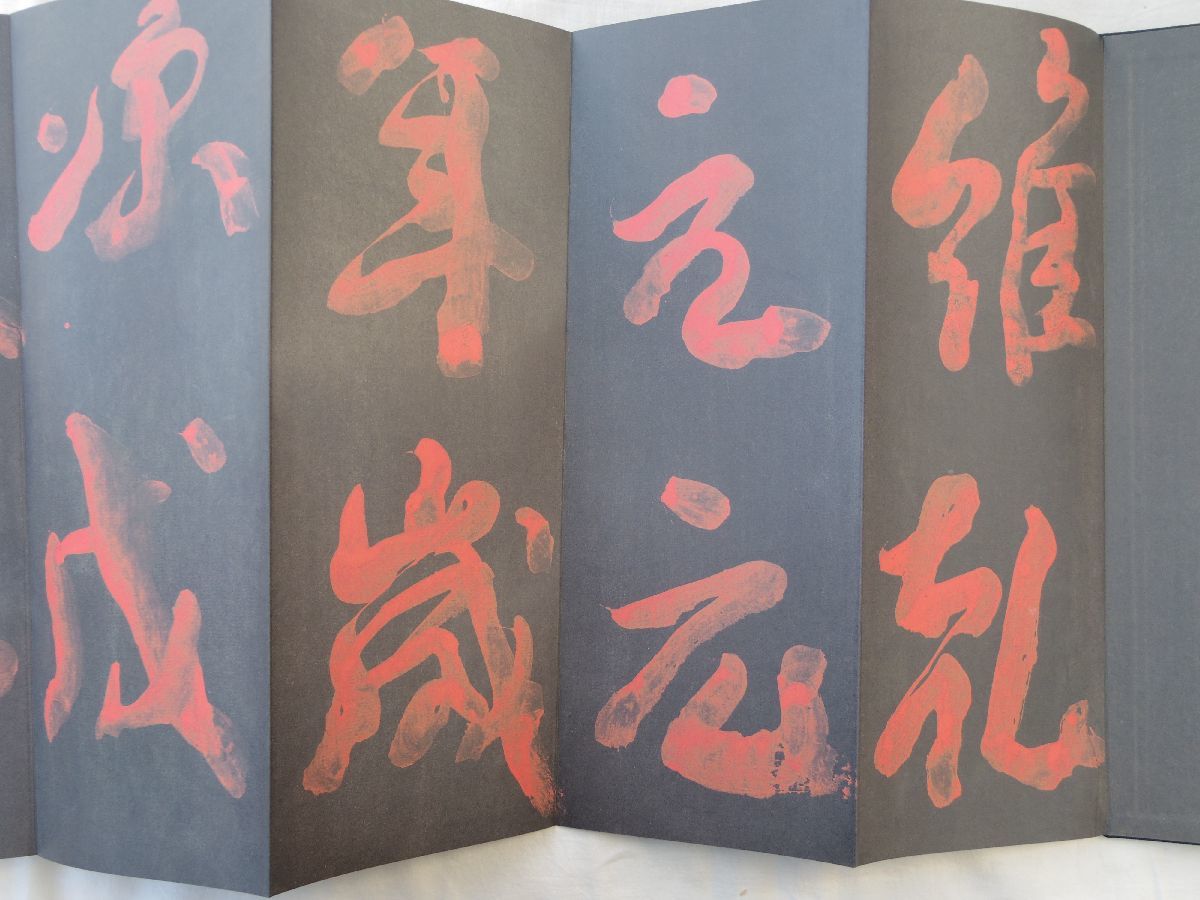 維乾
元元
年歲
次戊